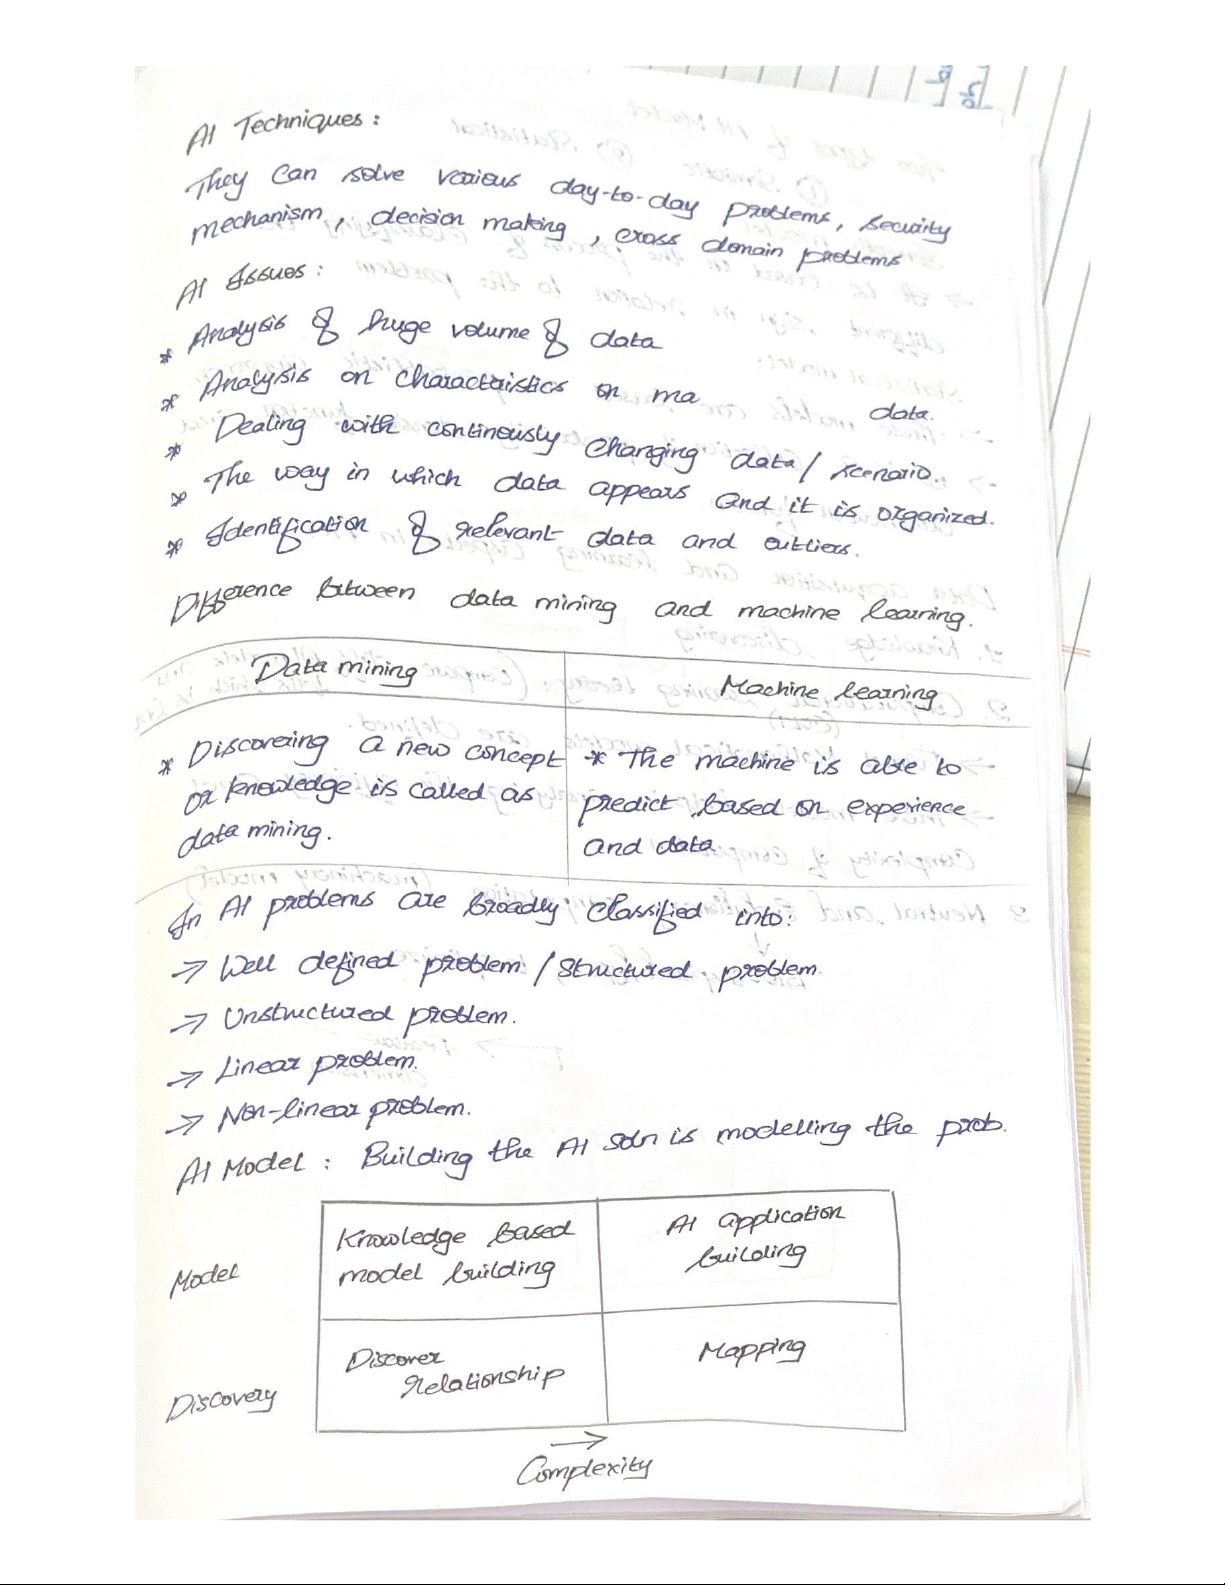 AI Techniques :
They Can solve various day-to-day problems, security
mechanism, decision making, cross domain problems
AI Issues :
* Analysis of huge volume of data
* Analysis on characteristics on ma data.
* Dealing with continously changing data/scenario.
* The way in which data appears and it is organized.
* Identification of relevant data and outliers.
Difference between data mining and machine learning.
Data mining
Machine learning
* Discovering a new concept
or knowledge is called as
data mining.
* The machine is able to
predict based on experience
and data
In AI problems are broadly classified into:
-> Well defined problem / Structured problem.
-> Unstructured problem.
-> Linear problem.
-> Non-linear problem.
AI Model : Building the AI soln is modelling the prob.
Knowledge based
model building
AI application
building
Model
Discover
relationship
Mapping
Discovery
->
Complexity